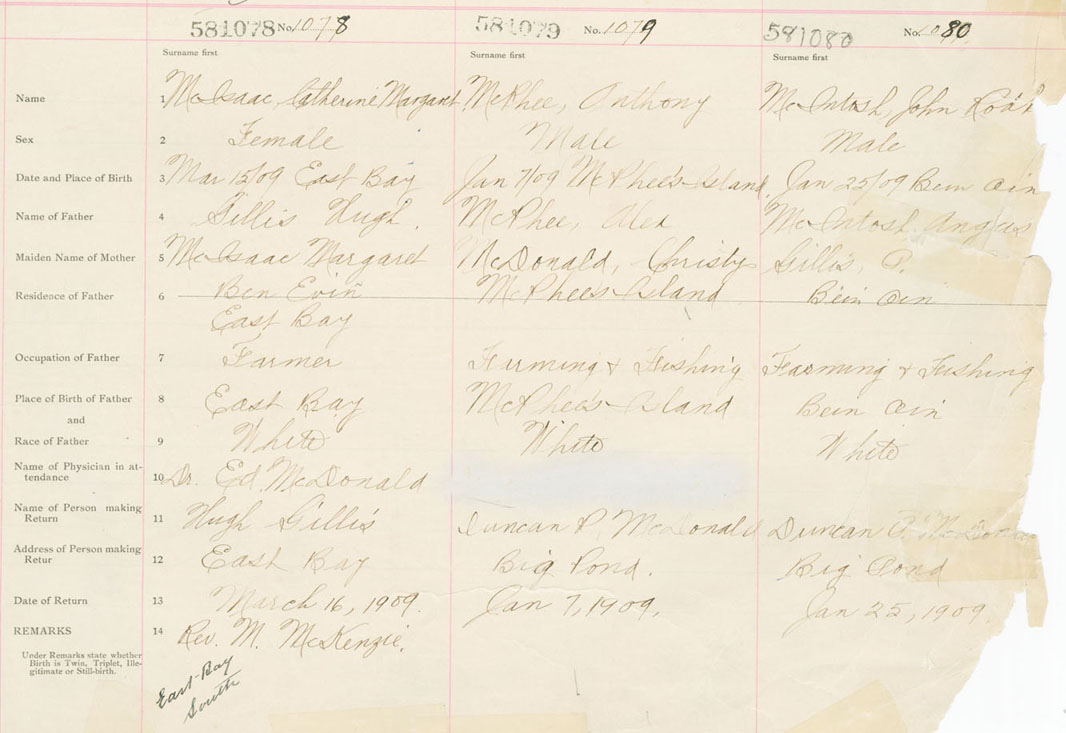 581078 No. 1078 581079 No. 1079 581080 No. 1080
Surname first Surname first Surname first
Name 1 McIsaac, Catherine Margaret McPhee, Anthony McIntosh, John
Sex 2 Female Male Male
Date and Place of Birth 3 Mar 15/09 East Bay Jan 7/09 McPhee's Island Jan 25/09 Bein Oin
Name of Father 4 Gillis Hugh. McPhee, Alex McIntosh Angus
Maiden Name of Mother 5 McIsaac Margaret McDonald, Christy Gillis, P.
Residence of Father 6 Ben Eoin McPhee's Island Bein Oin
East Bay
Occupation of Father 7 Farmer Farming & Fishing Farming & Fishing
Place of Birth of Father 8 East Bay McPhee's Island Bein Oin
and
Race of Father 9 White White White
Name of Physician in at-
tendance 10 Dr. Ed McDonald
Name of Person making
Return 11 Hugh Gillis Duncan P. McDonald Duncan P. McDonald
Address of Person making
Retur 12 East Bay Big Pond. Big Pond
Date of Return 13 March 16, 1909. Jan 7, 1909, Jan 25, 1909.
REMARKS 14 Rev. M. McKenzie.
Under Remarks state whether
Birth is Twin, Triplet, Ille-
gitimate or Still-birth.
East-Bay
South